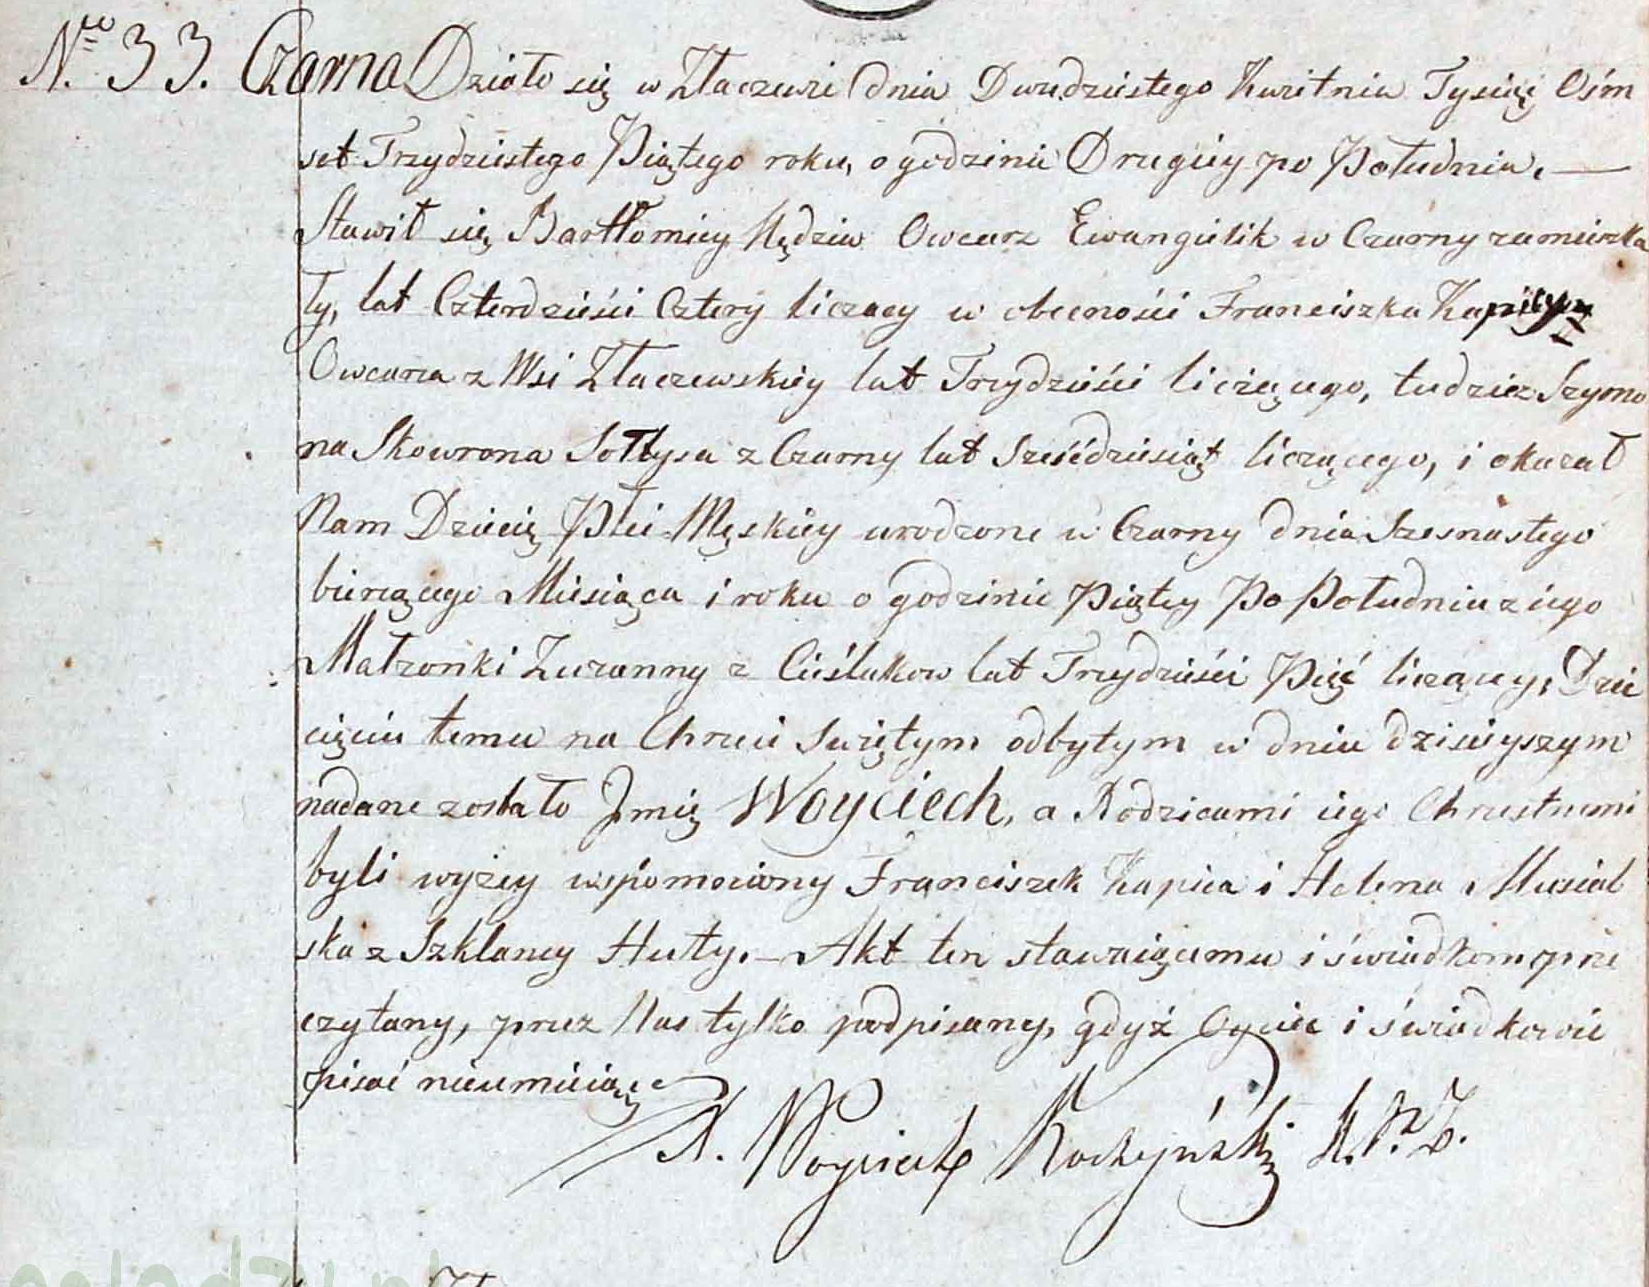 Nro 33. Czarna Działo się w Złaczewie dnia Dwudziestego Kwietnia Tysiąc Ośm
set Trzydziestego Piątego roku, o godzinie Drugiey po Południu. —
Stawił się Bartłomiey Nędzia Owcarz Ewangielik w Czarny zamieszka
ły, lat Czterdzieści Cztery liczący w obecności Franciszka Kapicy
Owcarza z Wsi Złaczewskiey lat Trzydzieści liczącego, tudzież Szymo
na Skowrona Sołtysa z Czarny lat Sześćdziesiąt liczącego, i okazał
Nam Dziecię Płci Męskiey urodzone w Czarny dnia Szesnastego
bieżącego Miesiąca i roku o godzinie Piątey Po Południu z iego
Małżonki Zuzanny z Cieślukow lat Trzydzieści Pięć liczący, Dzie
cięciu temu na Chrzcie Świętym odbytym w dniu dzisieyszym
nadane zostało Jmię Woyciech, a Rodzicami iego Chrzestnemi
byli wyżey wspomniony Franciszek Kapica i Helena Musial
ska z Szklaney Huty. — Akt ten stawaiącemu i świadkom prze
czytany, przez Nas tylko podpisany, gdyż Oyciec i świadkowie
pisać nieumieią
X. Woyciech K.P.Z.